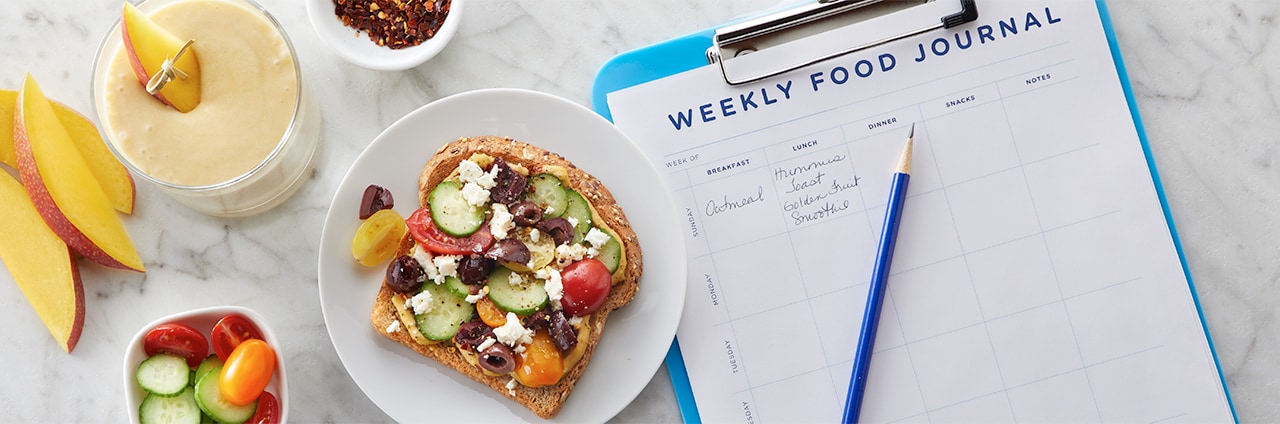 WEEKLY FOOD JOURNAL
WEEK OF
BREAKFAST LUNCH DINNER SNACKS NOTES
SUNDAY
Oatmeal
Hummus
Toast
Golden Fruit
Smoothie
MONDAY
TUESDAY